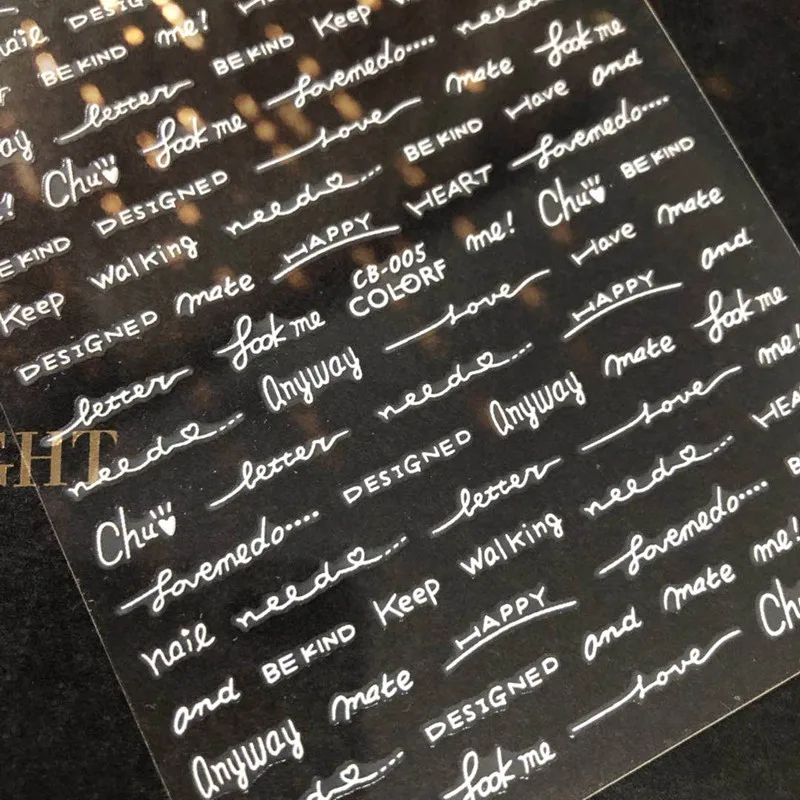 nail DESIGNED
BE KIND me! Keep need
letter BE KIND Lovemedo.... mate Look me
Chu Look me Love BE KIND Have and
DESIGNED need... HEART Lovemedo....
BE KIND walking HAPPY me! Chu BE KIND
Keep mate CB-005 Have mate
DESIGNED Look me COLORF Love and
letter Anyway HAPPY
need... need... mate Look me
GHT letter Anyway Love me!
Chu DESIGNED letter need...
Lovemedo.... walking
nail need... Keep Lovemedo....
and BE KIND HAPPY mate me!
Anyway mate DESIGNED and Love
Look me